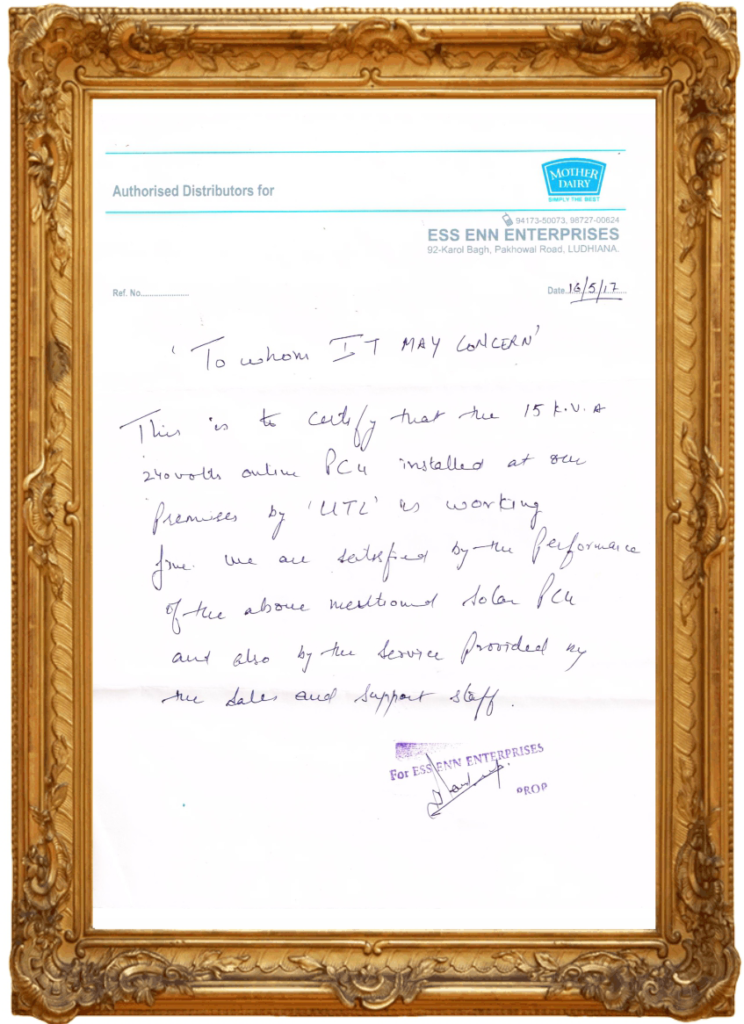 Authorised Distributors for
MOTHER
DAIRY
SIMPLY THE BEST
94173-50073, 98727-00624
ESS ENN ENTERPRISES
92-Karol Bagh, Pakhowal Road, LUDHIANA.
Ref. No....................
Date 16/5/17
'To whom IT MAY CONCERN'
This is to certify that the 15 K.V.A
240volts online PCU installed at our
Premises by 'UTL' is working
fine. we are satisfied by the Performance
of the above mentioned Solar PCU
and also by the Service Provided by
the Sales and Support staff.
For ESS ENN ENTERPRISES
PROP